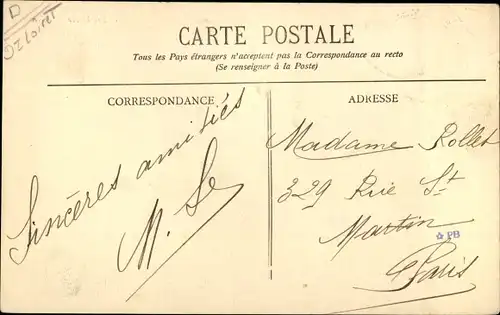 D
OZ Loiret
CARTE POSTALE
Tous les Pays étrangers n'acceptent pas la Correspondance au recto
(Se renseigner à la Poste)
CORRESPONDANCE
Sincères amitiés
M. Se
ADRESSE
Madame Rollet
329 Rue St
Martin
PB
Paris